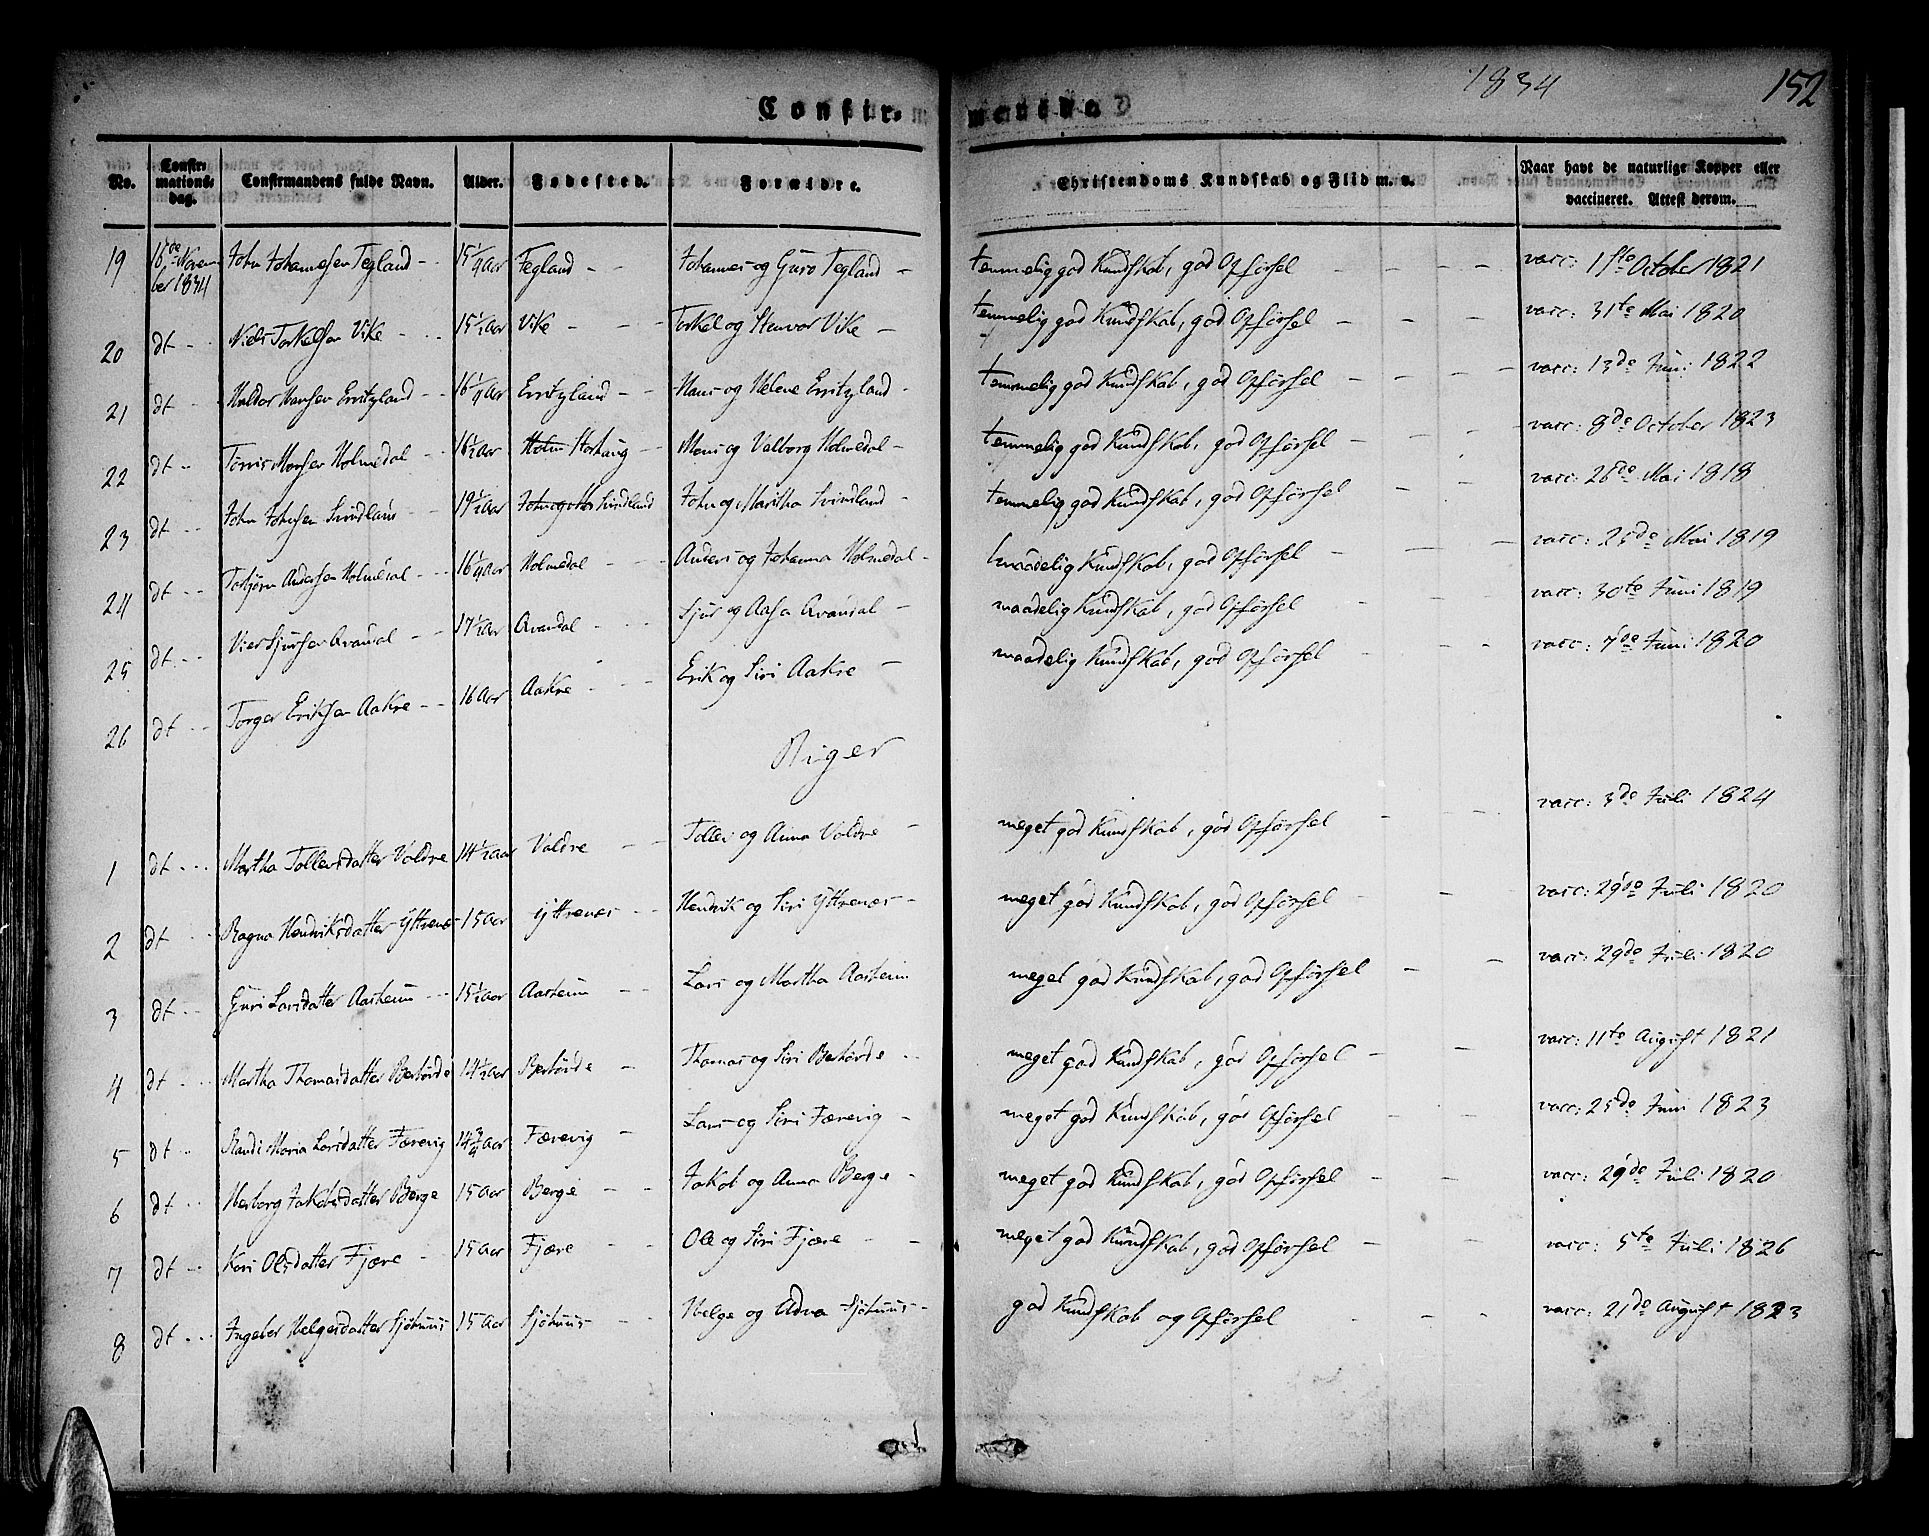 1834
152
Confir-mende
No. Confirmations-dag. Confirmandens fulde Navn. Alder. Fødested. Forældre. Christendoms Kundskab og Flid m. v. Naar havt de naturlige Kopper eller vaccineret. Attest derom.
19 16de Novem ber 1834 John Johannesen Tegland 15 1/4 Aar Tegland Johannes og Guro Tegland temmelig god Kundskab, god Opførsel vacc: 1ste October 1821
20 dt Niels Torkelsen Vike 15 1/2 Aar Vike Torkel og Stenvor Vike temmelig god Kundskab, god Opførsel vacc: 31te Mai 1820
21 dt Haldor Hansen 16 1/4 Aar Hans og Helene temmelig god Kundskab, god Opførsel vacc: 13de Juni 1822
22 dt Tørris Monsen Holmedal 16 1/2 Aar Holm Storhaug Mons og Valborg Holmedal temmelig god Kundskab, god Opførsel vacc: 8de October 1823
23 dt John Johnsen Svindland 19 1/2 Aar John og Mar Svindland John og Maritha Svindland temmelig god Kundskab, god Opførsel vacc: 26de Mai 1818
24 dt Torbjørn Andersen Holmedal 16 1/4 Aar Holmedal Anders og Johanna Holmedal maadelig Kundskab, god Opførsel vacc: 25de Mai 1819
25 dt Vier Sjursen Qvandal 17 1/2 Aar Qvandal Sjur og Aasa Qvandal maadelig Kundskab, god Opførsel vacc: 30te Juni 1819
26 dt Torger Eriksen Aakre 16 Aar Aakre Erik og Siri Aakre maadelig Kundskab, god Opførsel vacc: 7de Juni 1820
Piger
1 dt Martha Tollevsdatter Valdre 14 1/2 Aar Valdre Tollev og Anna Valdre meget god Kundskab, god Opførsel vacc: 3de Juli 1824
2 dt Ragna Hendriksdatter Yttrenæs 15 Aar Yttrenæs Hendrik og Siri Yttrenæs meget god Kundskab, god Opførsel vacc: 29de Juli 1820
3 dt Guri Larsdatter Aarheim 15 1/2 Aar Aarheim Lars og Martha Aarheim meget god Kundskab, god Opførsel vacc: 29de Juli 1820
4 dt Martha Thomasdatter Børtørde 14 1/2 Aar Børtørde Thomas og Siri Børtørde meget god Kundskab, god Opførsel vacc: 11te August 1821
5 dt Randi Maria Larsdatter Færevig 14 3/4 Aar Færevig Lars og Siri Færevig meget god Kundskab, god Opførsel vacc: 25de Juni 1823
6 dt Herborg Jakobsdatter Berge 15 Aar Berge Jakob og Anna Berge meget god Kundskab, god Opførsel vacc: 29de Juli 1820
7 dt Kari Olsdatter Fjære 15 Aar Fjære Ole og Siri Fjære meget god Kundskab, god Opførsel vacc: 5te Juli 1826
8 dt Ingebor Helgesdatter Sjøhuus 15 Aar Sjøhuus Helge og Adva Sjøhuus god Kundskab og Opførsel vacc: 21de August 1823